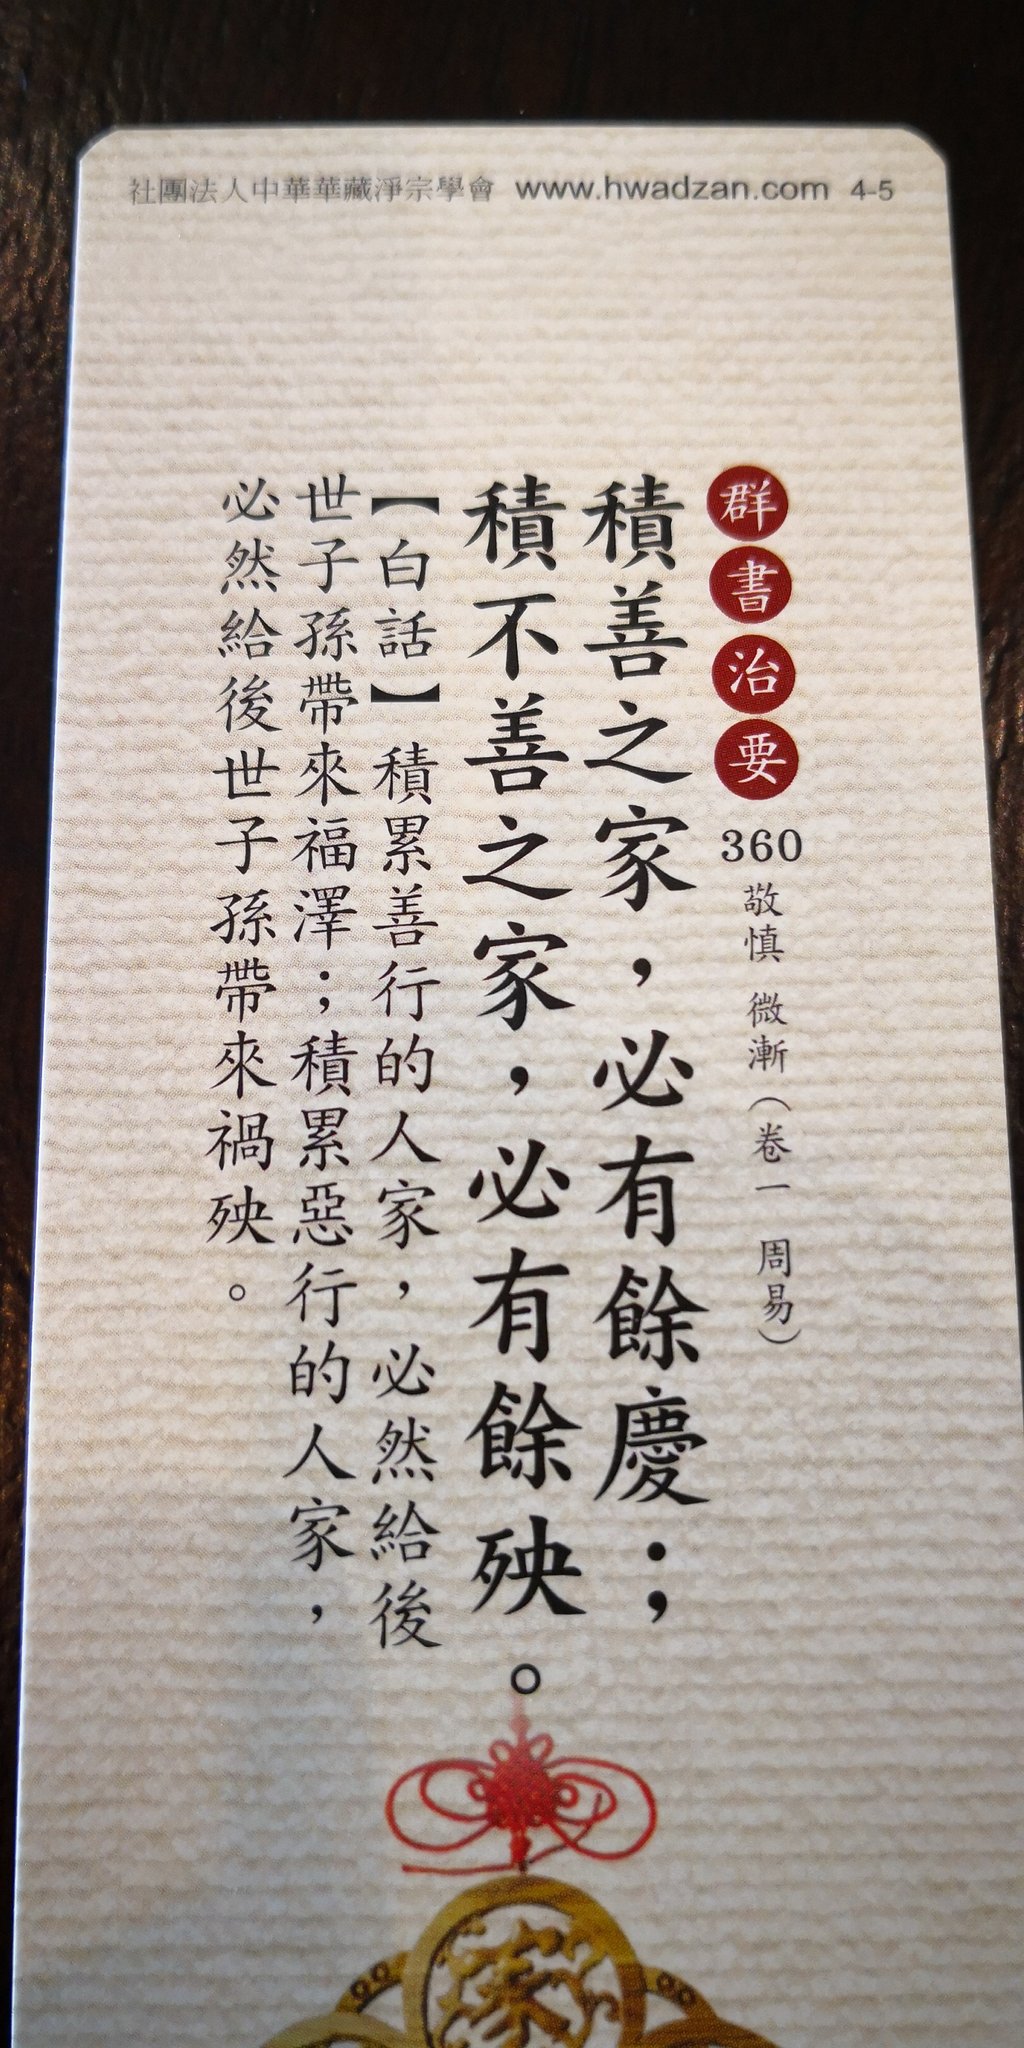 社團法人中華華藏淨宗學會 www.hwadzan.com 4-5
群書治要 360 敬慎 微漸（卷一 周易）
積善之家，必有餘慶；
積不善之家，必有餘殃。
【白話】積累善行的人家，必然給後
世子孫帶來福澤；積累惡行的人家，
必然給後世子孫帶來禍殃。
家